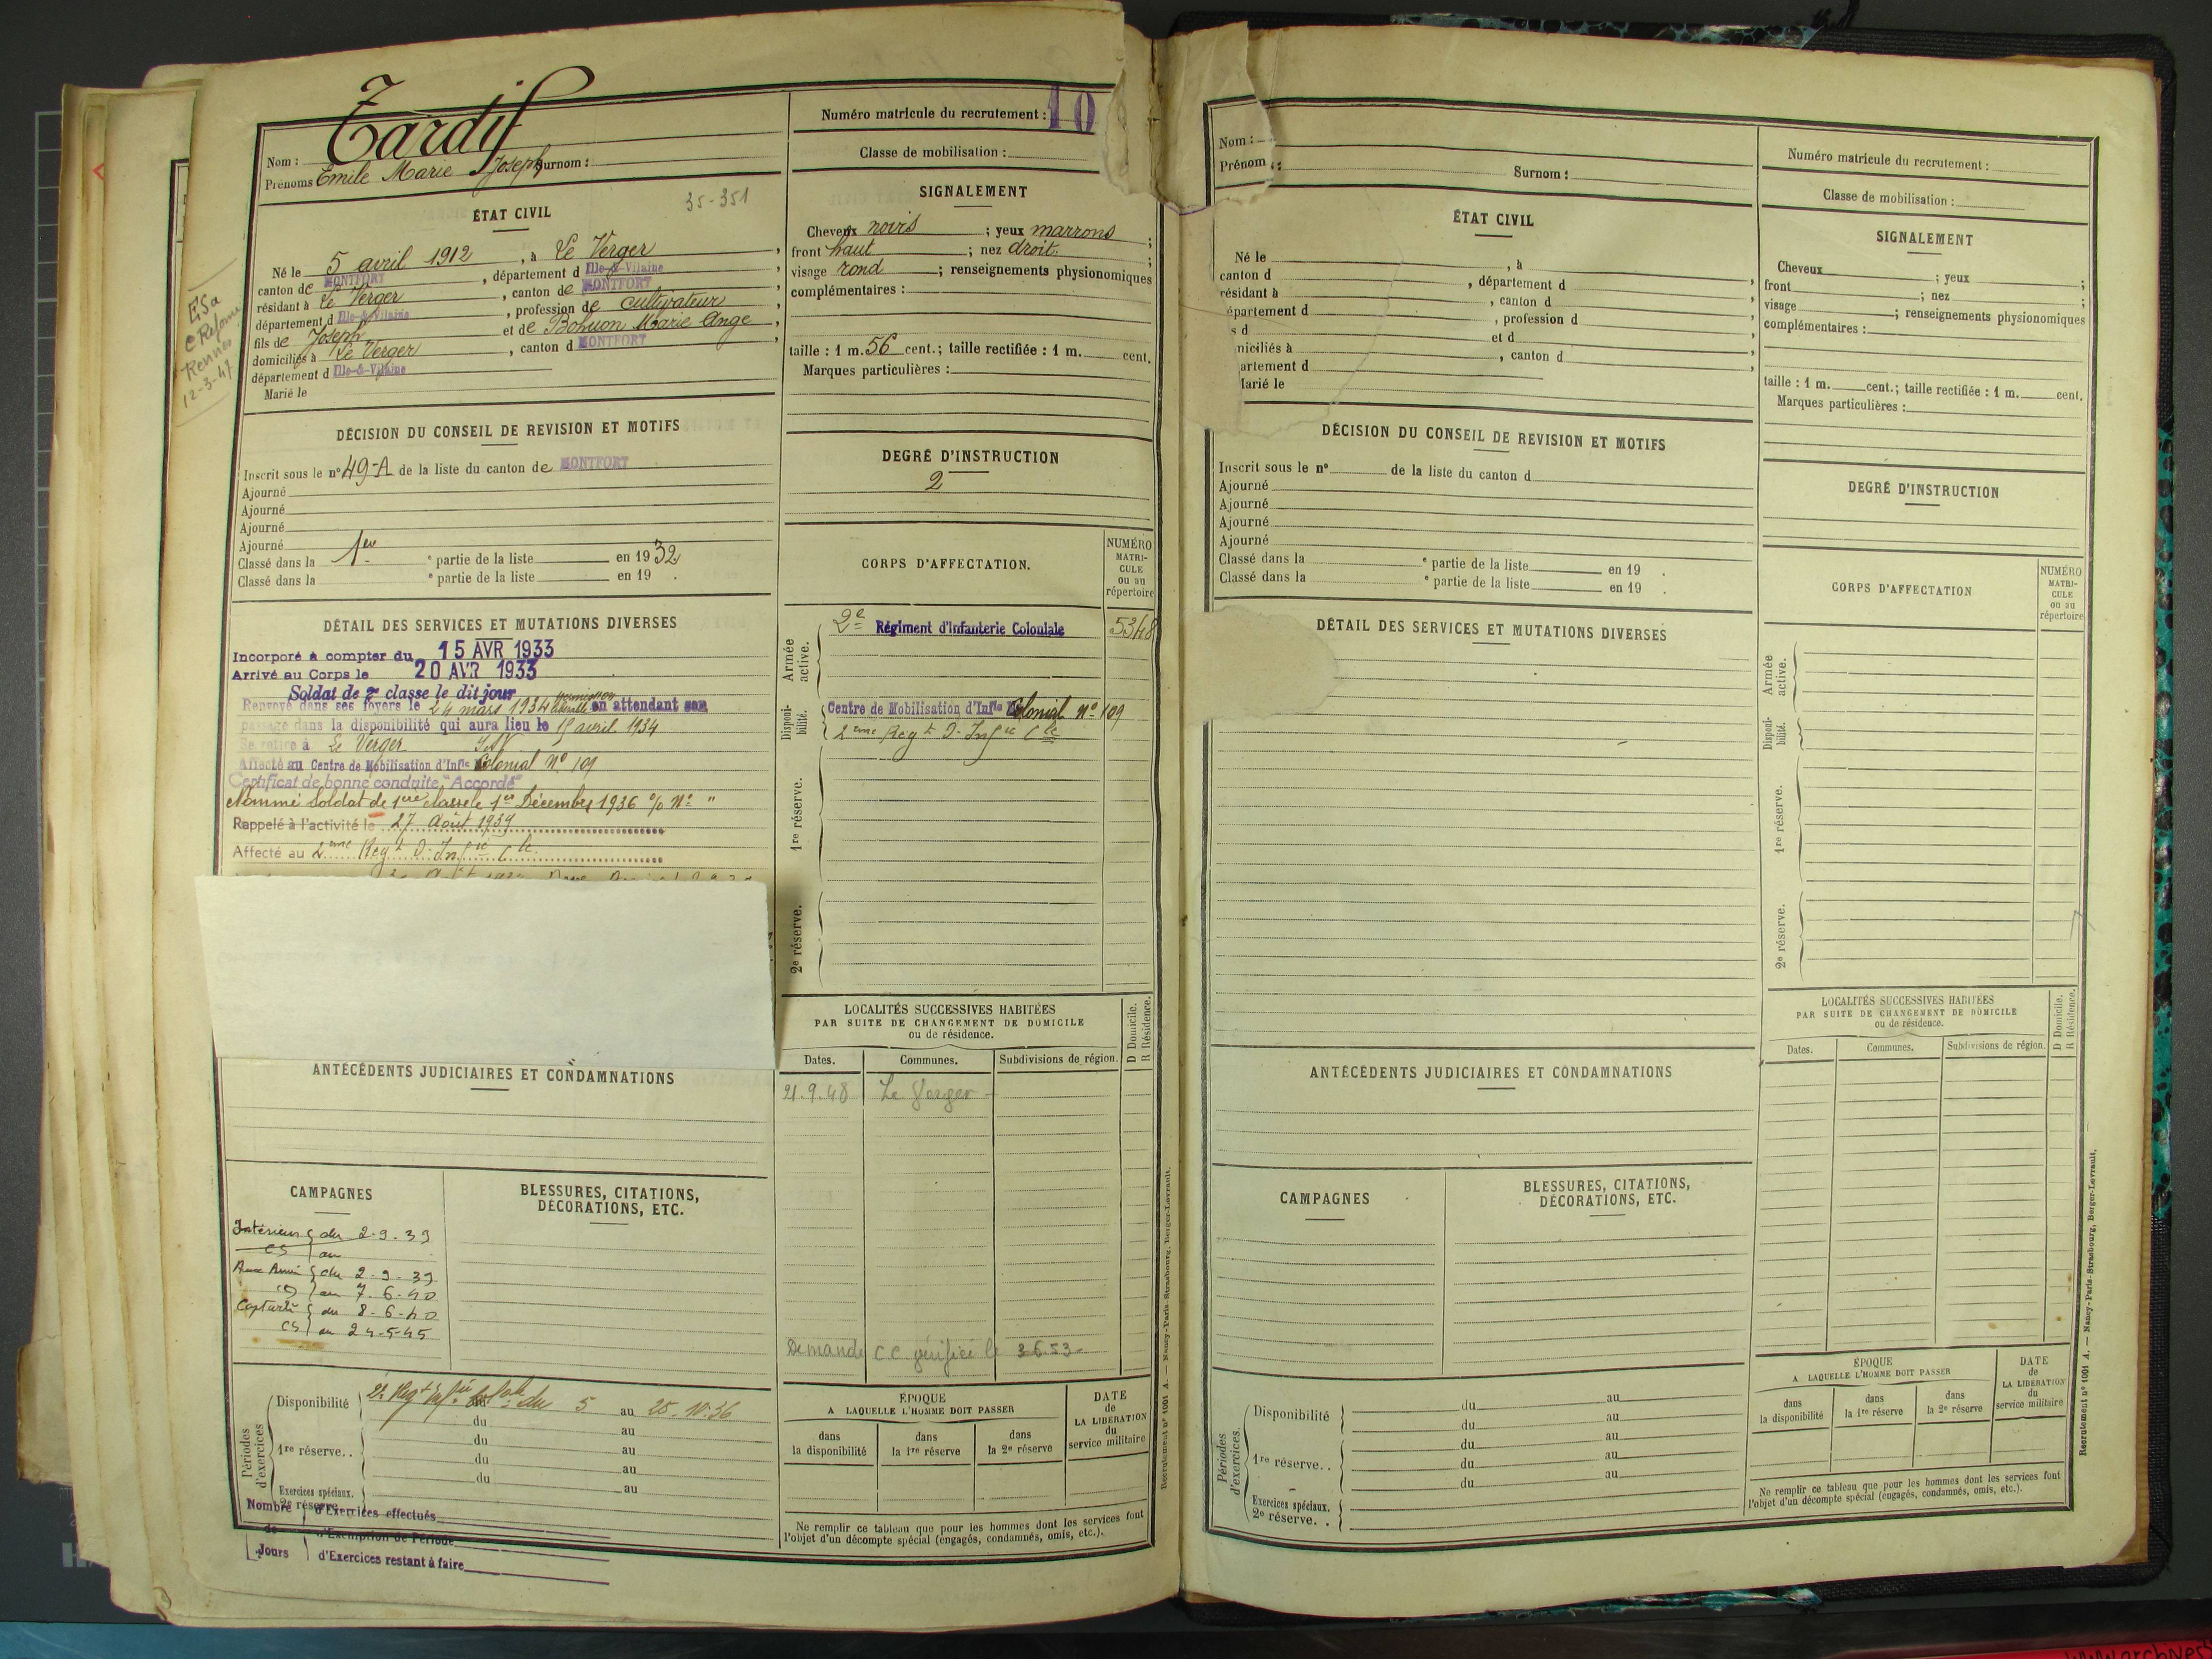 Tardif
Nom : Surnom :
Prénoms Emile Marie Joseph
35-351
ÉTAT CIVIL
Né le 5 avril 1912, à Le Verger,
canton de MONTFORT, département d Ille-&-Vilaine,
résidant à Le Verger, canton de MONTFORT,
département d Ille-&-Vilaine, profession de cultivateur,
fils de Joseph et de Bohuon Marie Ange,
domiciliés à Le Verger, canton d MONTFORT,
département d Ille-&-Vilaine
Marié le
ESa
C Reforme
Rennes
12-3-47
DÉCISION DU CONSEIL DE REVISION ET MOTIFS
Inscrit sous le n° 49-A de la liste du canton de MONTFORT
Ajourné
Ajourné
Ajourné
Ajourné
Classé dans la 1er e partie de la liste en 1932
Classé dans la e partie de la liste en 19 .
DÉTAIL DES SERVICES ET MUTATIONS DIVERSES
Incorporé à compter du 15 AVR 1933
Arrivé au Corps le 20 AVR 1933
Soldat de 2e classe le dit jour
Renvoyé dans ses foyers le 24 mars 1934 en attendant son
passage dans la disponibilité qui aura lieu le 15 avril 1934
Se retire à Le Verger I & V
Affecté au Centre de Mobilisation d'Infie Colonial N° 109
Certificat de bonne conduite "Accordé"
Nommé Soldat de 1ere classe le 1er Décembre 1936 % N° "
Rappelé à l'activité le 27 Août 1939
Affecté au 2eme Regt d'Infie Cle
ANTÉCÉDENTS JUDICIAIRES ET CONDAMNATIONS
CAMPAGNES
Intérieur du 2-9-39
CS au
Aux Armées du 2-9-39
CD au 7-6-40
Capturé du 8-6-40
CS au 24-5-45
BLESSURES, CITATIONS,
DÉCORATIONS, ETC.
Périodes d'exercices.
Disponibilité du 5 au 25-10-36
du au
1re réserve.. du au
du au
du au
Exercices spéciaux.
2e réserve
Nombre d'Exercices effectués
de d'Exemption de Période
Jours d'Exercices restant à faire
Numéro matricule du recrutement : 10
Classe de mobilisation :
SIGNALEMENT
Cheveux noirs ; yeux marrons ;
front haut ; nez droit. ;
visage rond ; renseignements physionomiques
complémentaires :
taille : 1 m. 56 cent.; taille rectifiée : 1 m. cent.
Marques particulières :
DEGRÉ D'INSTRUCTION
2
CORPS D'AFFECTATION.
NUMÉRO
MATRI-
CULE
ou au
répertoire
Armée active.
2e Régiment d'Infanterie Coloniale 5348
Disponi-bilité.
Centre de Mobilisation d'Infie Colonial N° 109
2eme Regt d'Infie Cle
1re réserve.
2e réserve.
LOCALITÉS SUCCESSIVES HABITÉES
PAR SUITE DE CHANGEMENT DE DOMICILE
ou de résidence.
D Domicile.
R Résidence.
Dates. Communes. Subdivisions de région.
21.9.48 Le Verger
Demande CC vérifiée le 3653
ÉPOQUE
A LAQUELLE L'HOMME DOIT PASSER
dans la disponibilité
dans la 1re réserve
dans la 2e réserve
DATE
de
LA LIBÉRATION
du
service militaire
Ne remplir ce tableau que pour les hommes dont les services font
l'objet d'un décompte spécial (engagés, condamnés, omis, etc.).
Recrutement n° 1001 A. — Nancy-Paris-Strasbourg, Berger-Levrault.
Nom :
Prénom :
Surnom :
ÉTAT CIVIL
Né le , à
canton d , département d ,
résidant à , canton d ,
épartement d , profession d ,
s d et d ,
niciliés à , canton d ,
artement d
Marié le
DÉCISION DU CONSEIL DE REVISION ET MOTIFS
Inscrit sous le n° de la liste du canton d
Ajourné
Ajourné
Ajourné
Ajourné
Classé dans la e partie de la liste en 19 .
Classé dans la e partie de la liste en 19 .
DÉTAIL DES SERVICES ET MUTATIONS DIVERSES
ANTÉCÉDENTS JUDICIAIRES ET CONDAMNATIONS
CAMPAGNES
BLESSURES, CITATIONS,
DÉCORATIONS, ETC.
Périodes d'exercices.
Disponibilité du au
du au
1re réserve.. du au
du au
du au
Exercices spéciaux.
2e réserve. .
Numéro matricule du recrutement :
Classe de mobilisation :
SIGNALEMENT
Cheveux ; yeux ;
front ; nez ;
visage ; renseignements physionomiques
complémentaires :
taille : 1 m. cent.; taille rectifiée : 1 m. cent.
Marques particulières :
DEGRÉ D'INSTRUCTION
CORPS D'AFFECTATION
NUMÉRO
MATRI-
CULE
ou au
répertoire
Armée active.
Disponi-bilité.
1re réserve.
2e réserve.
LOCALITÉS SUCCESSIVES HABITÉES
PAR SUITE DE CHANGEMENT DE DOMICILE
ou de résidence.
D Domicile.
R Résidence.
Dates. Communes. Subdivisions de région.
ÉPOQUE
A LAQUELLE L'HOMME DOIT PASSER
dans la disponibilité
dans la 1re réserve
dans la 2e réserve
DATE
de
LA LIBÉRATION
du
service militaire
Ne remplir ce tableau que pour les hommes dont les services font
l'objet d'un décompte spécial (engagés, condamnés, omis, etc.).
Recrutement n° 1001 A. — Nancy-Paris-Strasbourg, Berger-Levrault.